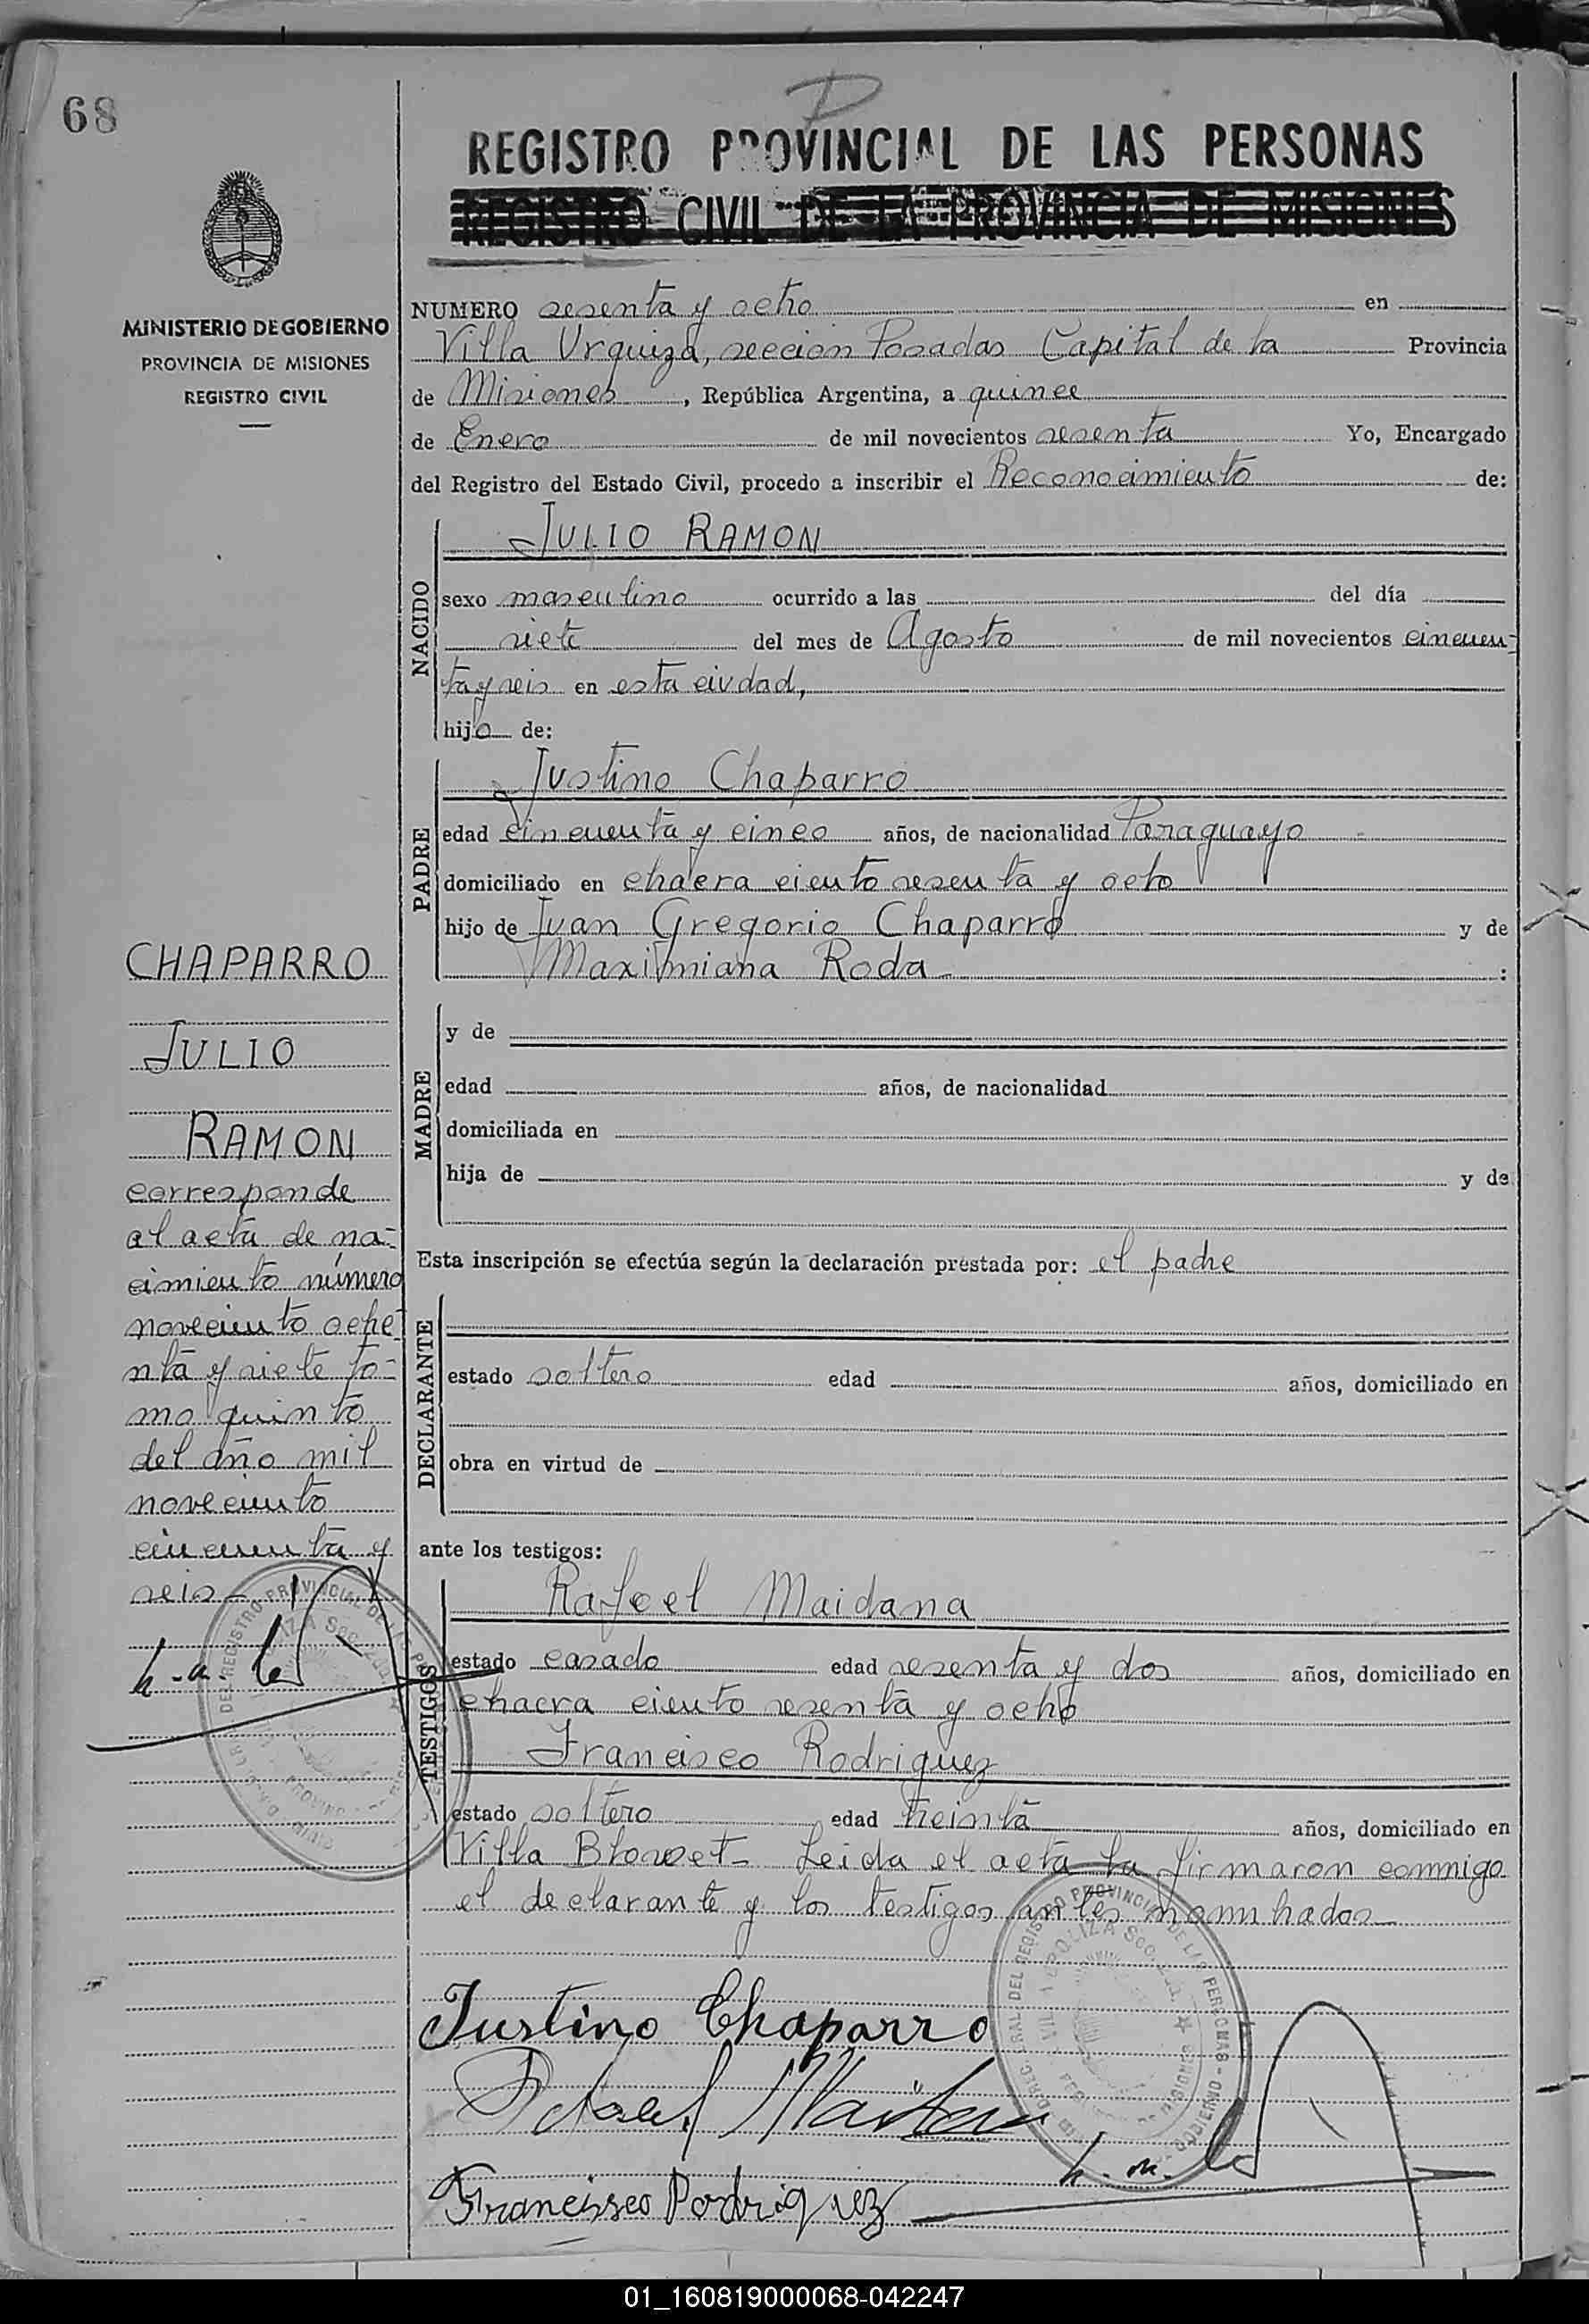 68
P
REGISTRO PROVINCIAL DE LAS PERSONAS
REGISTRO CIVIL DE LA PROVINCIA DE MISIONES
MINISTERIO DE GOBIERNO
PROVINCIA DE MISIONES
REGISTRO CIVIL
NUMERO sesenta y ocho en
Villa Urquiza, seccion Posadas Capital de la Provincia
de Misiones, República Argentina, a quince
de Enero de mil novecientos sesenta Yo, Encargado
del Registro del Estado Civil, procedo a inscribir el Reconocimiento de:
NACIDO
JULIO RAMON
sexo masculino ocurrido a las del día
siete del mes de Agosto de mil novecientos cincuen-
ta y seis en esta ciudad,
hijo de:
PADRE
Justino Chaparro
edad cincuenta y cinco años, de nacionalidad Paraguayo
domiciliado en chacra ciento sesenta y ocho
hijo de Juan Gregorio Chaparro y de
Maximiana Roda :
MADRE
y de
edad años, de nacionalidad
domiciliada en
hija de y de
Esta inscripción se efectúa según la declaración prestada por: el padre
DECLARANTE
estado soltero edad años, domiciliado en
obra en virtud de
ante los testigos:
TESTIGOS
Rafael Maidana
estado casado edad sesenta y dos años, domiciliado en
chacra ciento sesenta y ocho
Francisco Rodriguez
estado soltero edad treinta años, domiciliado en
Villa Blowet- Leida el acta la firmaron conmigo
el declarante y los testigos antes
Justino Chaparro
Rafael Maidana
Francisco Rodriguez
CHAPARRO
JULIO
RAMON
corresponde
al acta de na-
cimiento número
noveciento oche-
nta y siete to-
mo quinto
del año mil
noveciento
cincuenta y
seis-
01_160819000068-042247